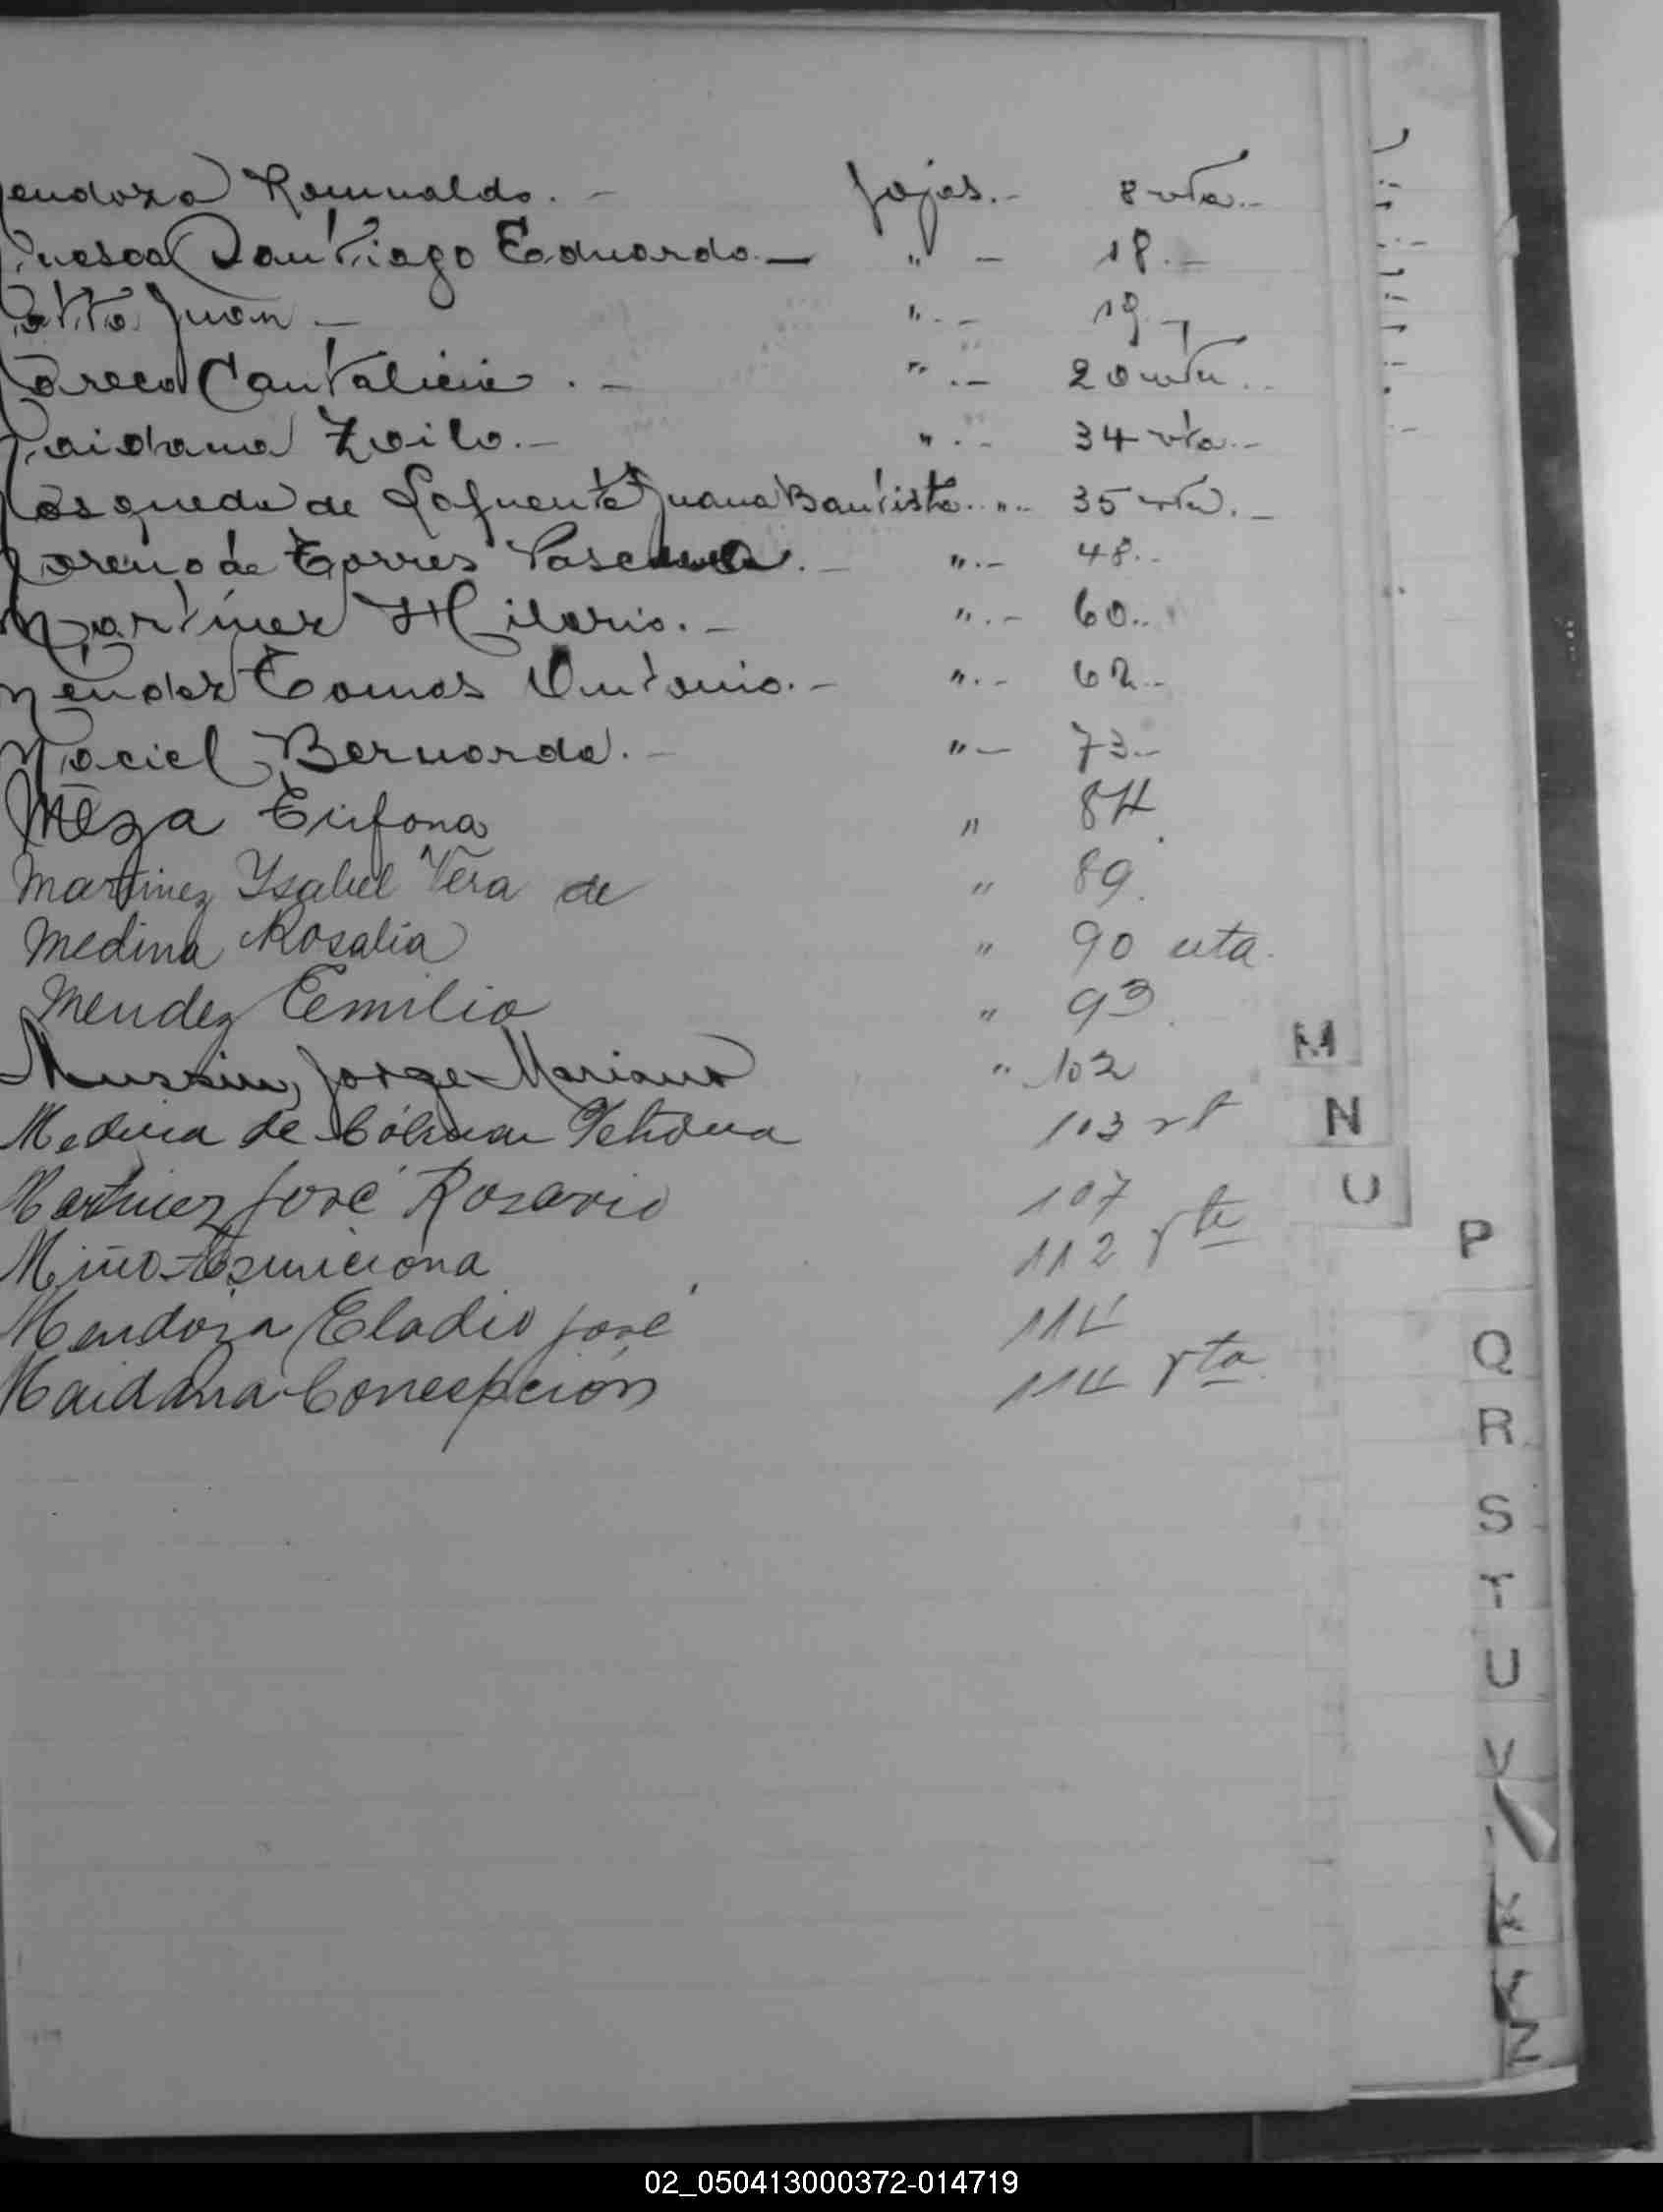 endoza Romualdo. - fojas. - 8 vta. -
Santiago Eduardo. - " - 18. -
Juan - " . - 19. -
Cantalicia . - " . - 20 vta. .
aidana Zoilo. - " . - 34 vta. -
osqueda de Lafuente Juana Bautista. . " . . 35 vta. -
oreno de Torres Pascuala. - " . - 48. -
Martinez Hilario. - " . - 60. .
Mendez Tomas Antonio. - " . - 62. -
Maciel Bernarda. - " - 73. -
Meza Eufona " 84.
Martinez Ysabel Vera de " 89.
Medina Rosalia " 90 uta.
Mendez Eemilio " 93.
Jorge Mariano " 102
Medina de 103 vt
Martinez José Rosario 107
Miño Asunciona 112 vta
Mendoza Eladio José 114
Maidana Concepción 114 vta.
M
N
O
P
Q
R
S
T
U
V
Z
02_050413000372-014719